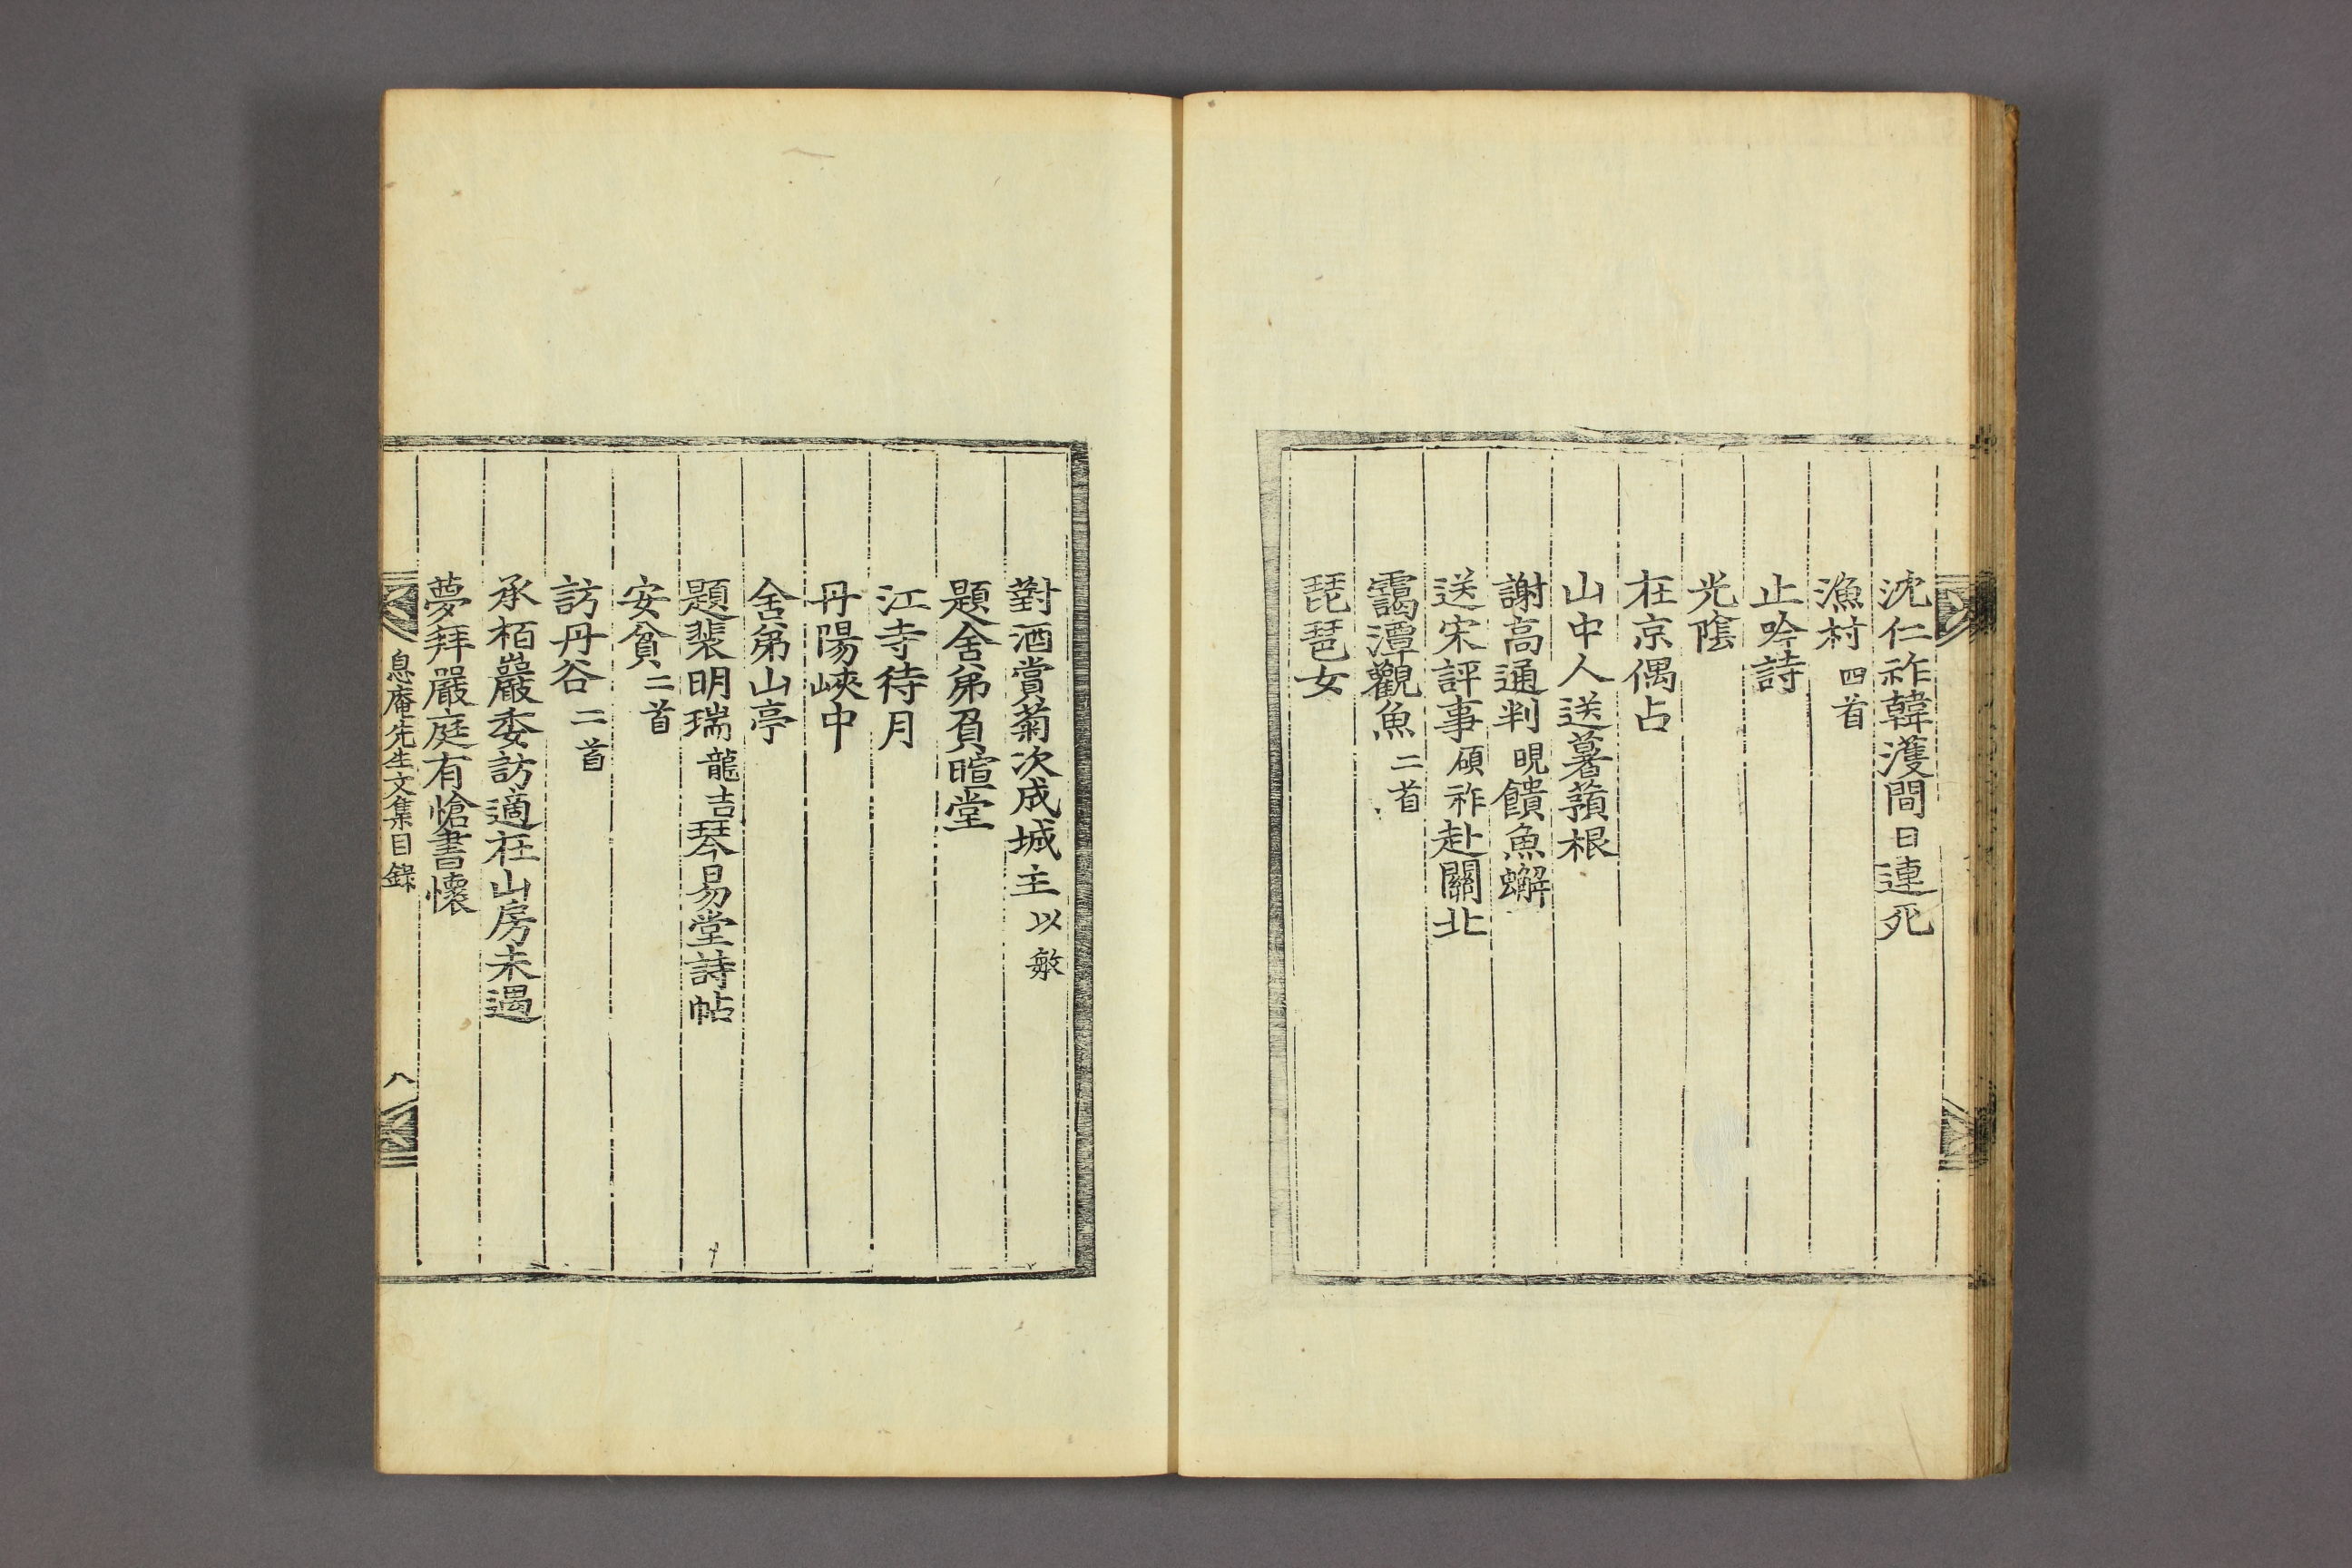 沈仁祚韓濩間日連死
漁村 四首
止吟詩
光陰
在京偶占
山中人送薯蕷根
謝高通判 晛 饋魚蠏
送宋評事 碩祚 赴關北
靄潭觀魚 二首
琵琶女
對酒賞菊次成城主 以敏
題舍弟負暄堂
江寺待月
丹陽峽中
舍弟山亭
題裴明瑞 龍吉 琴易堂詩帖
安貧 二首
訪丹谷 二首
承栢巖委訪適在山房未遇
夢拜嚴庭有愴書懷
息庵先生文集目錄 八